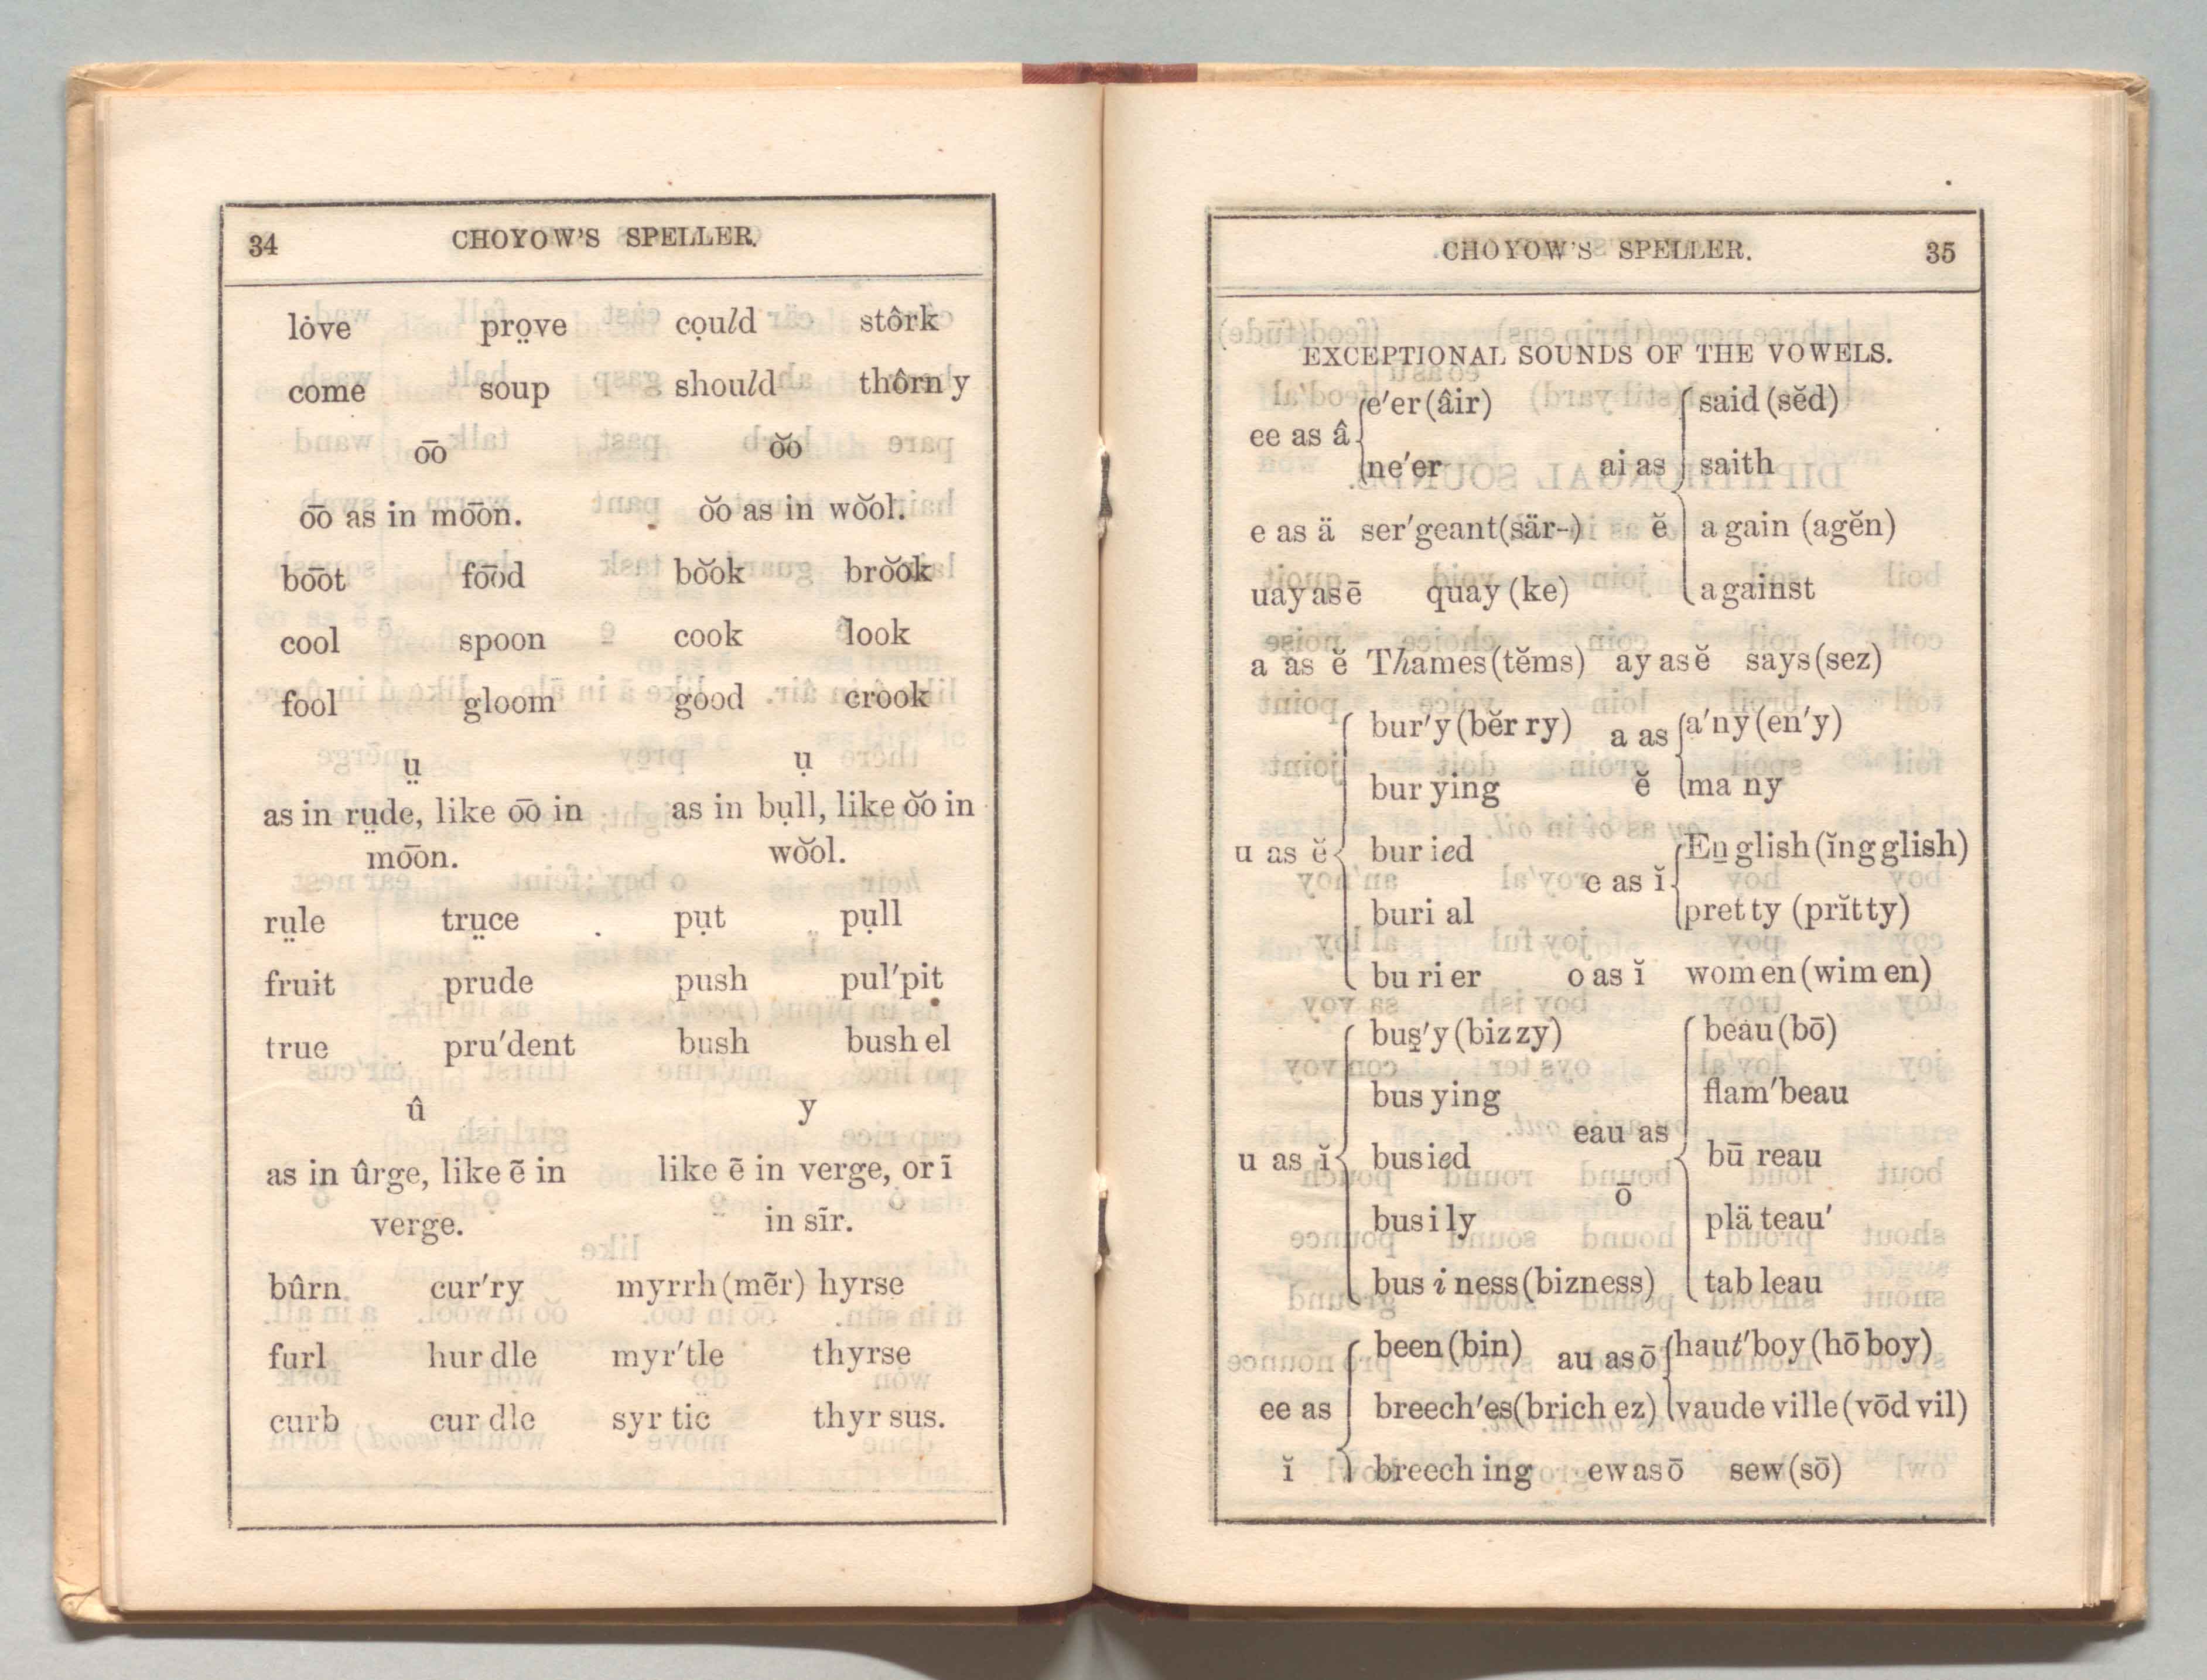 34 CHOYOW'S SPELLER.
lȯve pro̤ve cọuld stôrk
come soup should thôrn y
o͞o o͝o
o͞o as in mo͞on. o͝o as in wo͝ol.
bo͞ot fo͞od bo͝ok bro͝ok
cool spoon cook look
fool gloom good crook
ṳ ụ
as in rṳde, like o͞o in as in bụll, like o͝o in
mo͞on. wo͝ol.
rṳle trṳce pụt pụll
fruit prude push pul'pit
true pru'dent bush bush el
û y
as in ûrge, like ẽ in like ẽ in verge, or ĩ
verge. in sĩr.
bûrn cur'ry myrrh (mẽr) hyrse
furl hur dle myr'tle thyrse
curb cur dle syr tic thyr sus.
CHOYOW'S SPELLER. 35
EXCEPTIONAL SOUNDS OF THE VOWELS.
e'er (âir) said (sĕd)
ee as â
ne'er ai as saith
e as ä ser'geant (sär-) ĕ a gain (agĕn)
uay as ē quay (ke) a gainst
a as ĕ Thames (tĕms) ay as ĕ says (sez)
bur'y (bĕr ry) a as a'ny (en'y)
bur ying ĕ ma ny
u as ĕ bur ied En̲ glish (ĭng glish)
e as ĭ
buri al pret ty (prĭt ty)
bu ri er o as ĭ wom en (wim en)
buṣ'y (biz zy) beau (bō)
bus ying flam'beau
eau as
u as ĭ bus ied bū reau
ō
bus i ly plä teau'
bus i ness (bizness) tab leau
been (bin) au as ō haut'boy (hō boy)
ee as breech'es (brich ez) vaude ville (vōd vil)
ĭ breech ing ew as ō sew (sō)